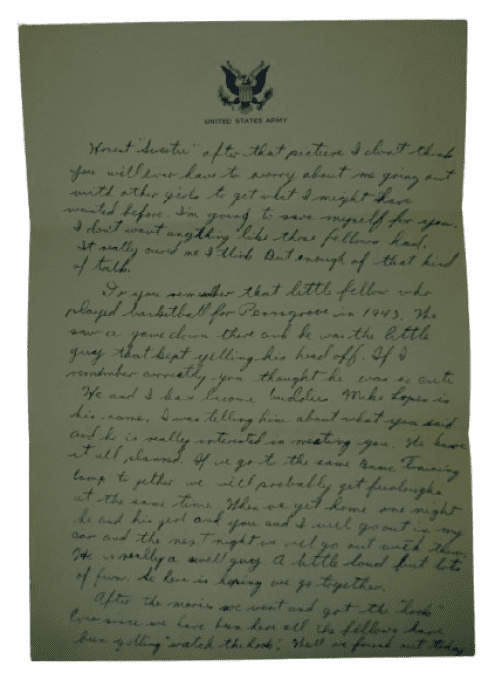 UNITED STATES ARMY
Honest "Sweetie" after that picture I don't think
you will ever have to worry about me going out
with other girls to get what I might have
wanted before. I'm going to save myself for you.
I don't want anything like those fellows had.
It really cured me I think. But enough of that kind
of talk.
Do you remember that little fellow who
played basketball for Pennsgrove in 1943. We
saw a game down there and he was the little
guy that kept yelling his head off. If I
remember correctly you thought he was so cute
He and I has become buddies. Mike Lopes is
his name. I was telling him about what you said
and he is really interested in meeting you. We have
it all planned. If we go to the same Basic Training
Camp to gether we will probably get furloughs
at the same time. When we get home one night
he and his girl and you and I will go out in my
car and the next night we will go out with them.
He is really a swell guy A little loud but lots
of fun. is hoping we go together.
After the movies we went and got the "hook"
Ever since we have been here all the fellows have
been yelling "watch the hook". Well we found out today